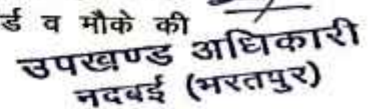 र्ड व मौके की
उपखण्ड अधिकारी
नदबई (भरतपुर)